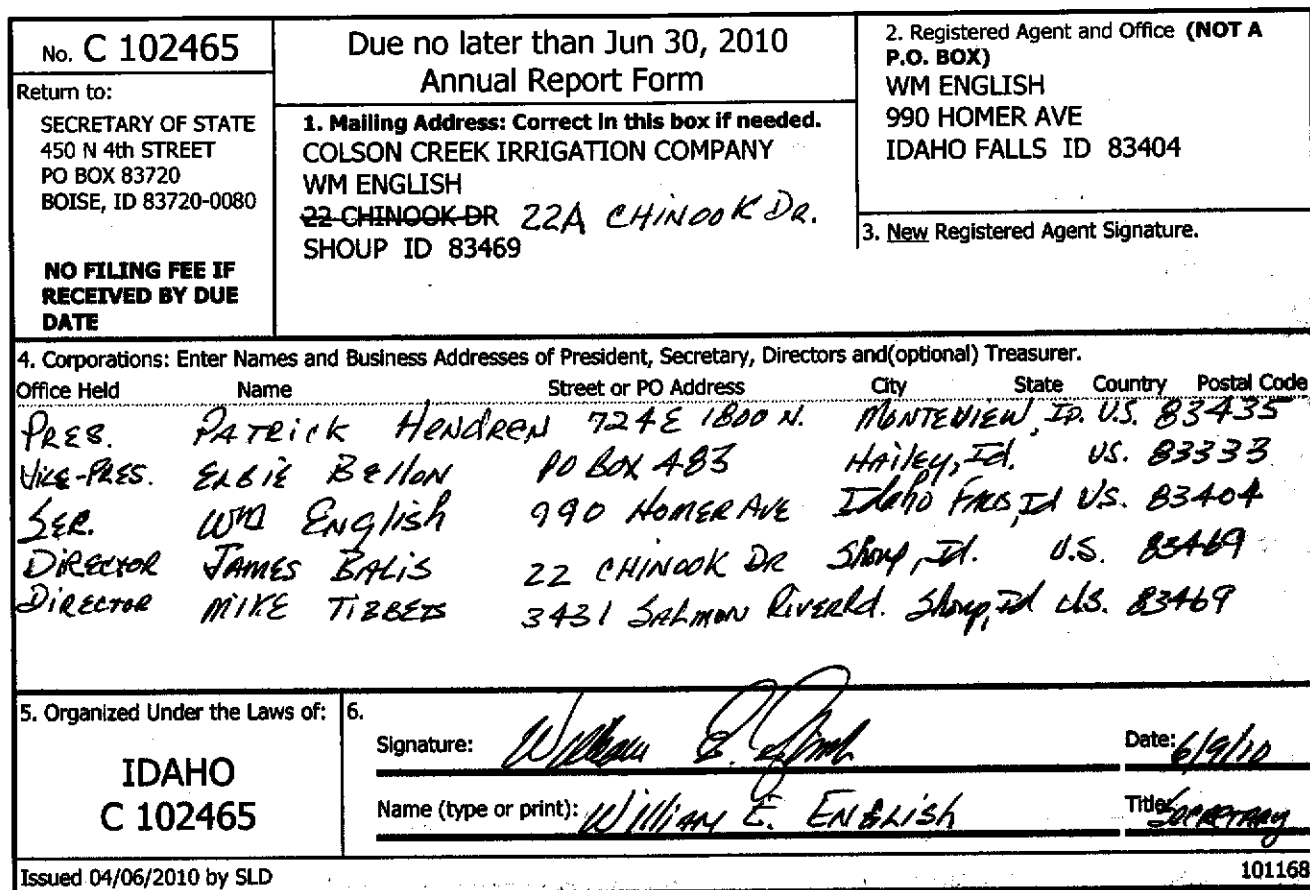 No. C 102465
Return to:
SECRETARY OF STATE
450 N 4th STREET
PO BOX 83720
BOISE, ID 83720-0080
NO FILING FEE IF
RECEIVED BY DUE
DATE
Due no later than Jun 30, 2010
Annual Report Form
1. Mailing Address: Correct in this box if needed.
COLSON CREEK IRRIGATION COMPANY
WM ENGLISH
22 CHINOOK DR 22A CHINOOK DR.
SHOUP ID 83469
2. Registered Agent and Office (NOT A
P.O. BOX)
WM ENGLISH
990 HOMER AVE
IDAHO FALLS ID 83404
3. New Registered Agent Signature.
4. Corporations: Enter Names and Business Addresses of President, Secretary, Directors and(optional) Treasurer.
Office Held Name Street or PO Address City State Country Postal Code
PRES. PATRICK HENDREN 724E 1800 N. MONTEVIEW, ID. U.S. 83435
VICE-PRES. ELSIE Bellon PO BOX 483 HAiley, Id. US. 83333
SER. WM English 990 HOMER AVE Idaho Falls, Id US. 83404
DIRECTOR JAMES BALIS 22 CHINOOK DR Shoup, Id. U.S. 83469
DIRECTOR MIKE TIBBETS 3431 SALMON River Rd. Shoup, Id US. 83469
5. Organized Under the Laws of:
IDAHO
C 102465
6.
Signature: William E. English Date: 6/9/10
Name (type or print): William E. ENGLISH Title: Secretary
Issued 04/06/2010 by SLD 101168